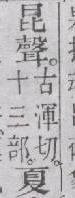 昆聲。古渾切。十三部。夏